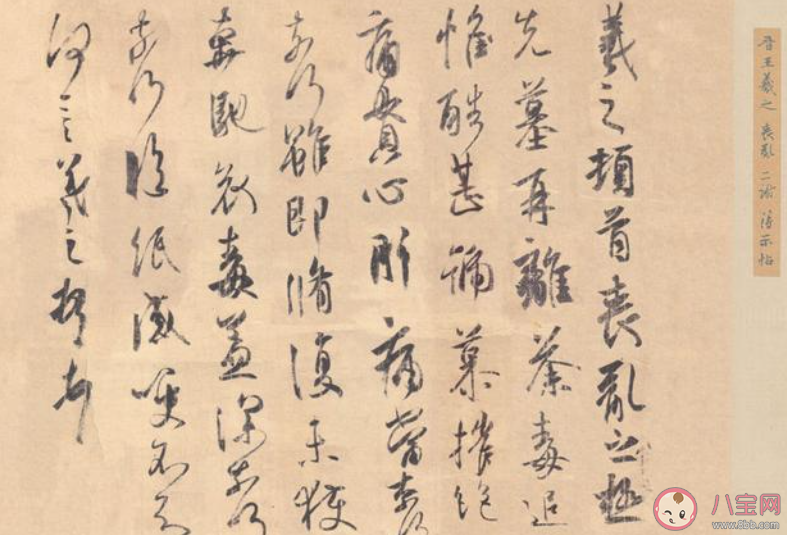 晋王羲之 喪亂 二謝 得示帖
羲之頓首喪亂之極
先墓再離荼毒追
惟酷甚號慕摧絕
痛貫心肝痛當奈何
奈何雖即脩復未獲
奔馳哀毒益深奈何
奈何臨紙感哽不知
何言羲之頓首
八宝网
www.8bb.com